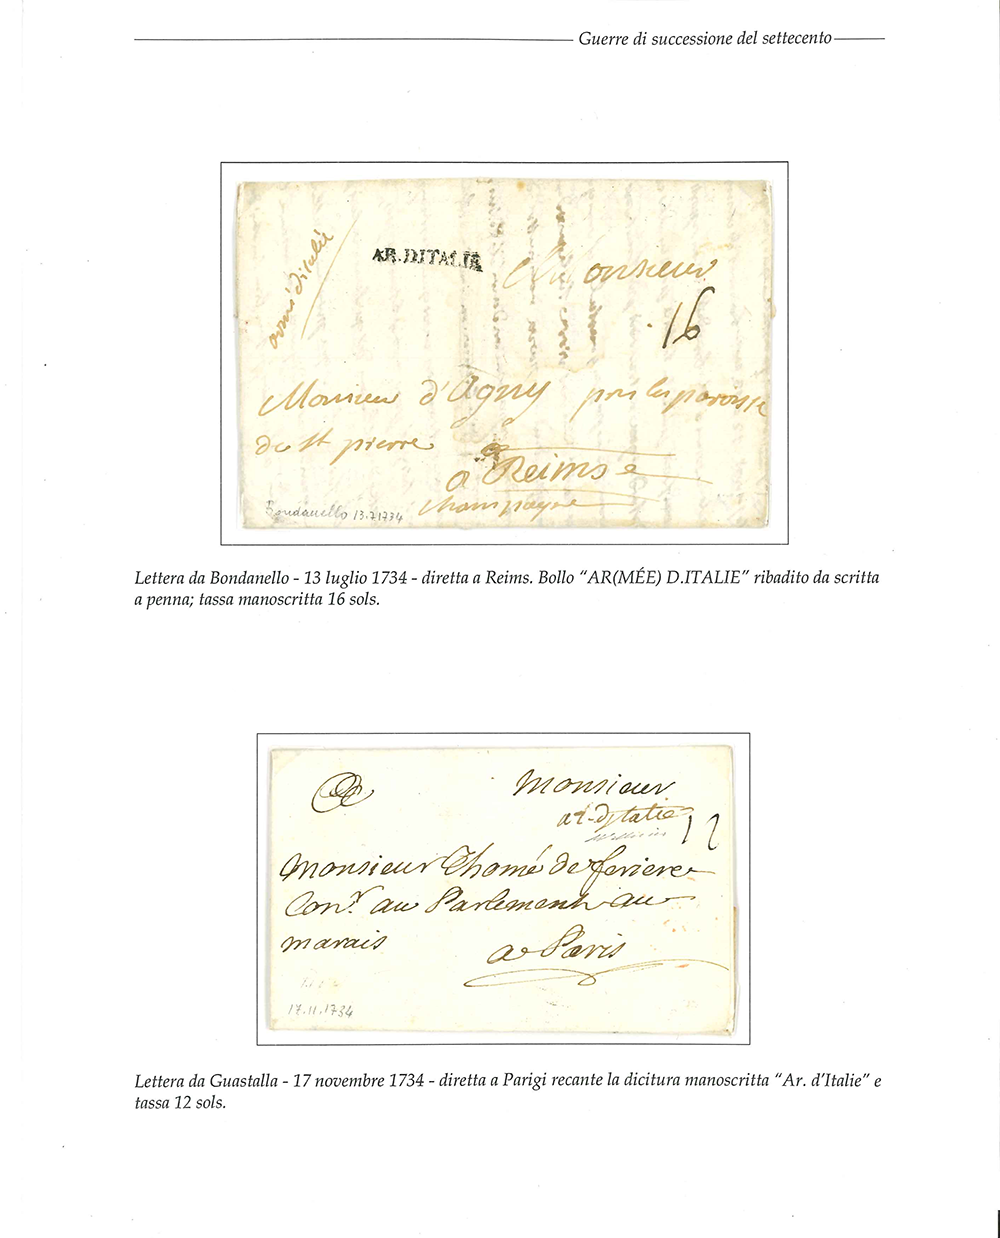 Guerre di successione del settecento
armé d'italie
AR.DITALIE
Monsieur
16
Monsieur d'Agny près la paroisse
de St pierre
a Reims e
champagne
Bondanello 13.7.1734
Lettera da Bondanello - 13 luglio 1734 - diretta a Reims. Bollo “AR(MÉE) D.ITALIE” ribadito da scritta
a penna; tassa manoscritta 16 sols.
Monsieur
ar. Ditalie
12
Monsieur Thomé de feriere
Con.r au Parlement au
marais
a Paris
17.11.1734
Lettera da Guastalla - 17 novembre 1734 - diretta a Parigi recante la dicitura manoscritta “Ar. d'Italie” e
tassa 12 sols.